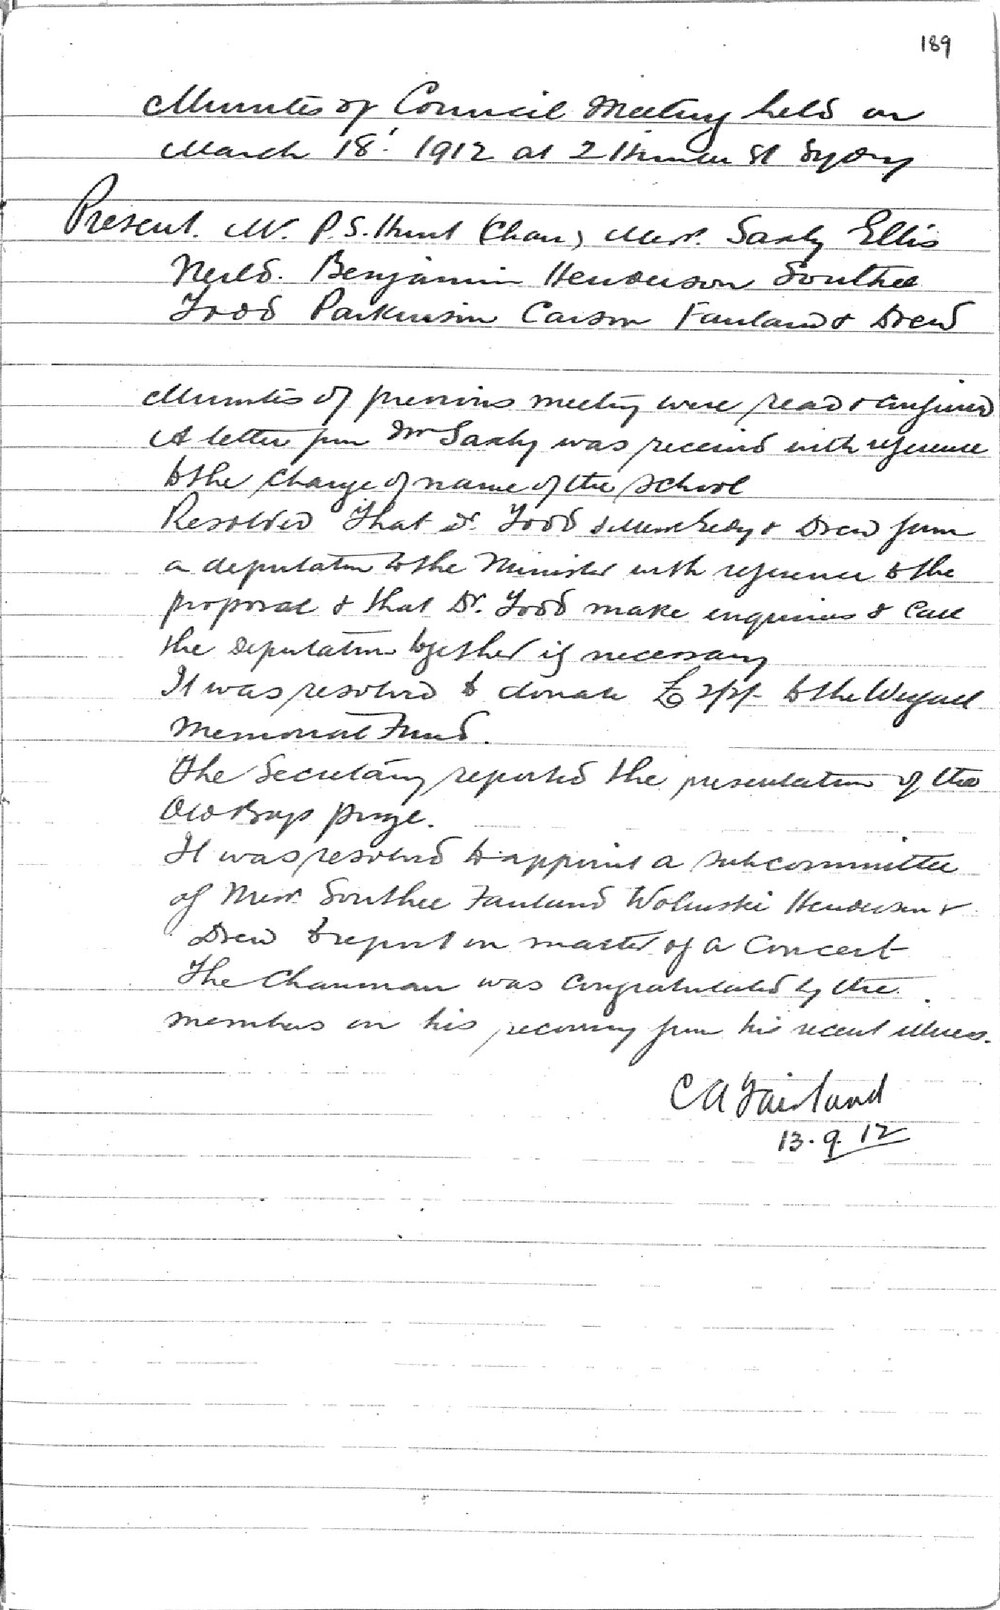 189
Minutes of Council Meeting held on
March 18' 1912 at 2 Hunter St Sydney
Present. Mr. P.S. Hunt (Chair) Messrs. Saxby Ellis
Neild. Benjamin Henderson Southee
Todd Parkinson Carson Fairland & Drew
Minutes of previous meeting were read & confirmed
A letter from Mr Saxby was received with reference
to the change of name of the school
Resolved That Dr. Todd & Drew form
a deputation to the Minister with reference to the
proposal & that Dr. Todd make inquiries & call
the deputation together if necessary
It was resolved to donate £ 2/2/- to the Weigall
Memorial Fund.
The Secretary reported the presentation of the
Old Boys prize.
It was resolved to appoint a subcommittee
of Messrs. Southee Fairland Wolinski Henderson &
Drew to report on matter of a Concert
The Chairman was congratulated by the
members on his recovery from his recent illness.
C A Fairland
13.9.12